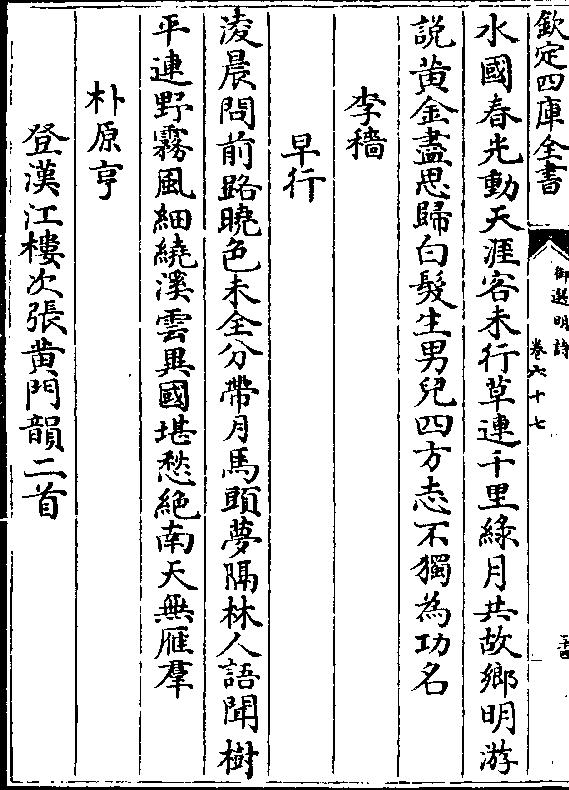 欽定四庫全書
御選明詩
卷六十七
水國春光動天涯客未行草連千里緑月共故鄉明游
説黃金盡思歸白髮生男兒四方志不獨為功名
李穡
早行
淩晨問前路曉色未全分帶月馬頭夢隔林人語聞樹
平連野霧風細繞溪雲異國堪愁絶南天無雁羣
朴原亨
登漢江樓次張黃門韻二首